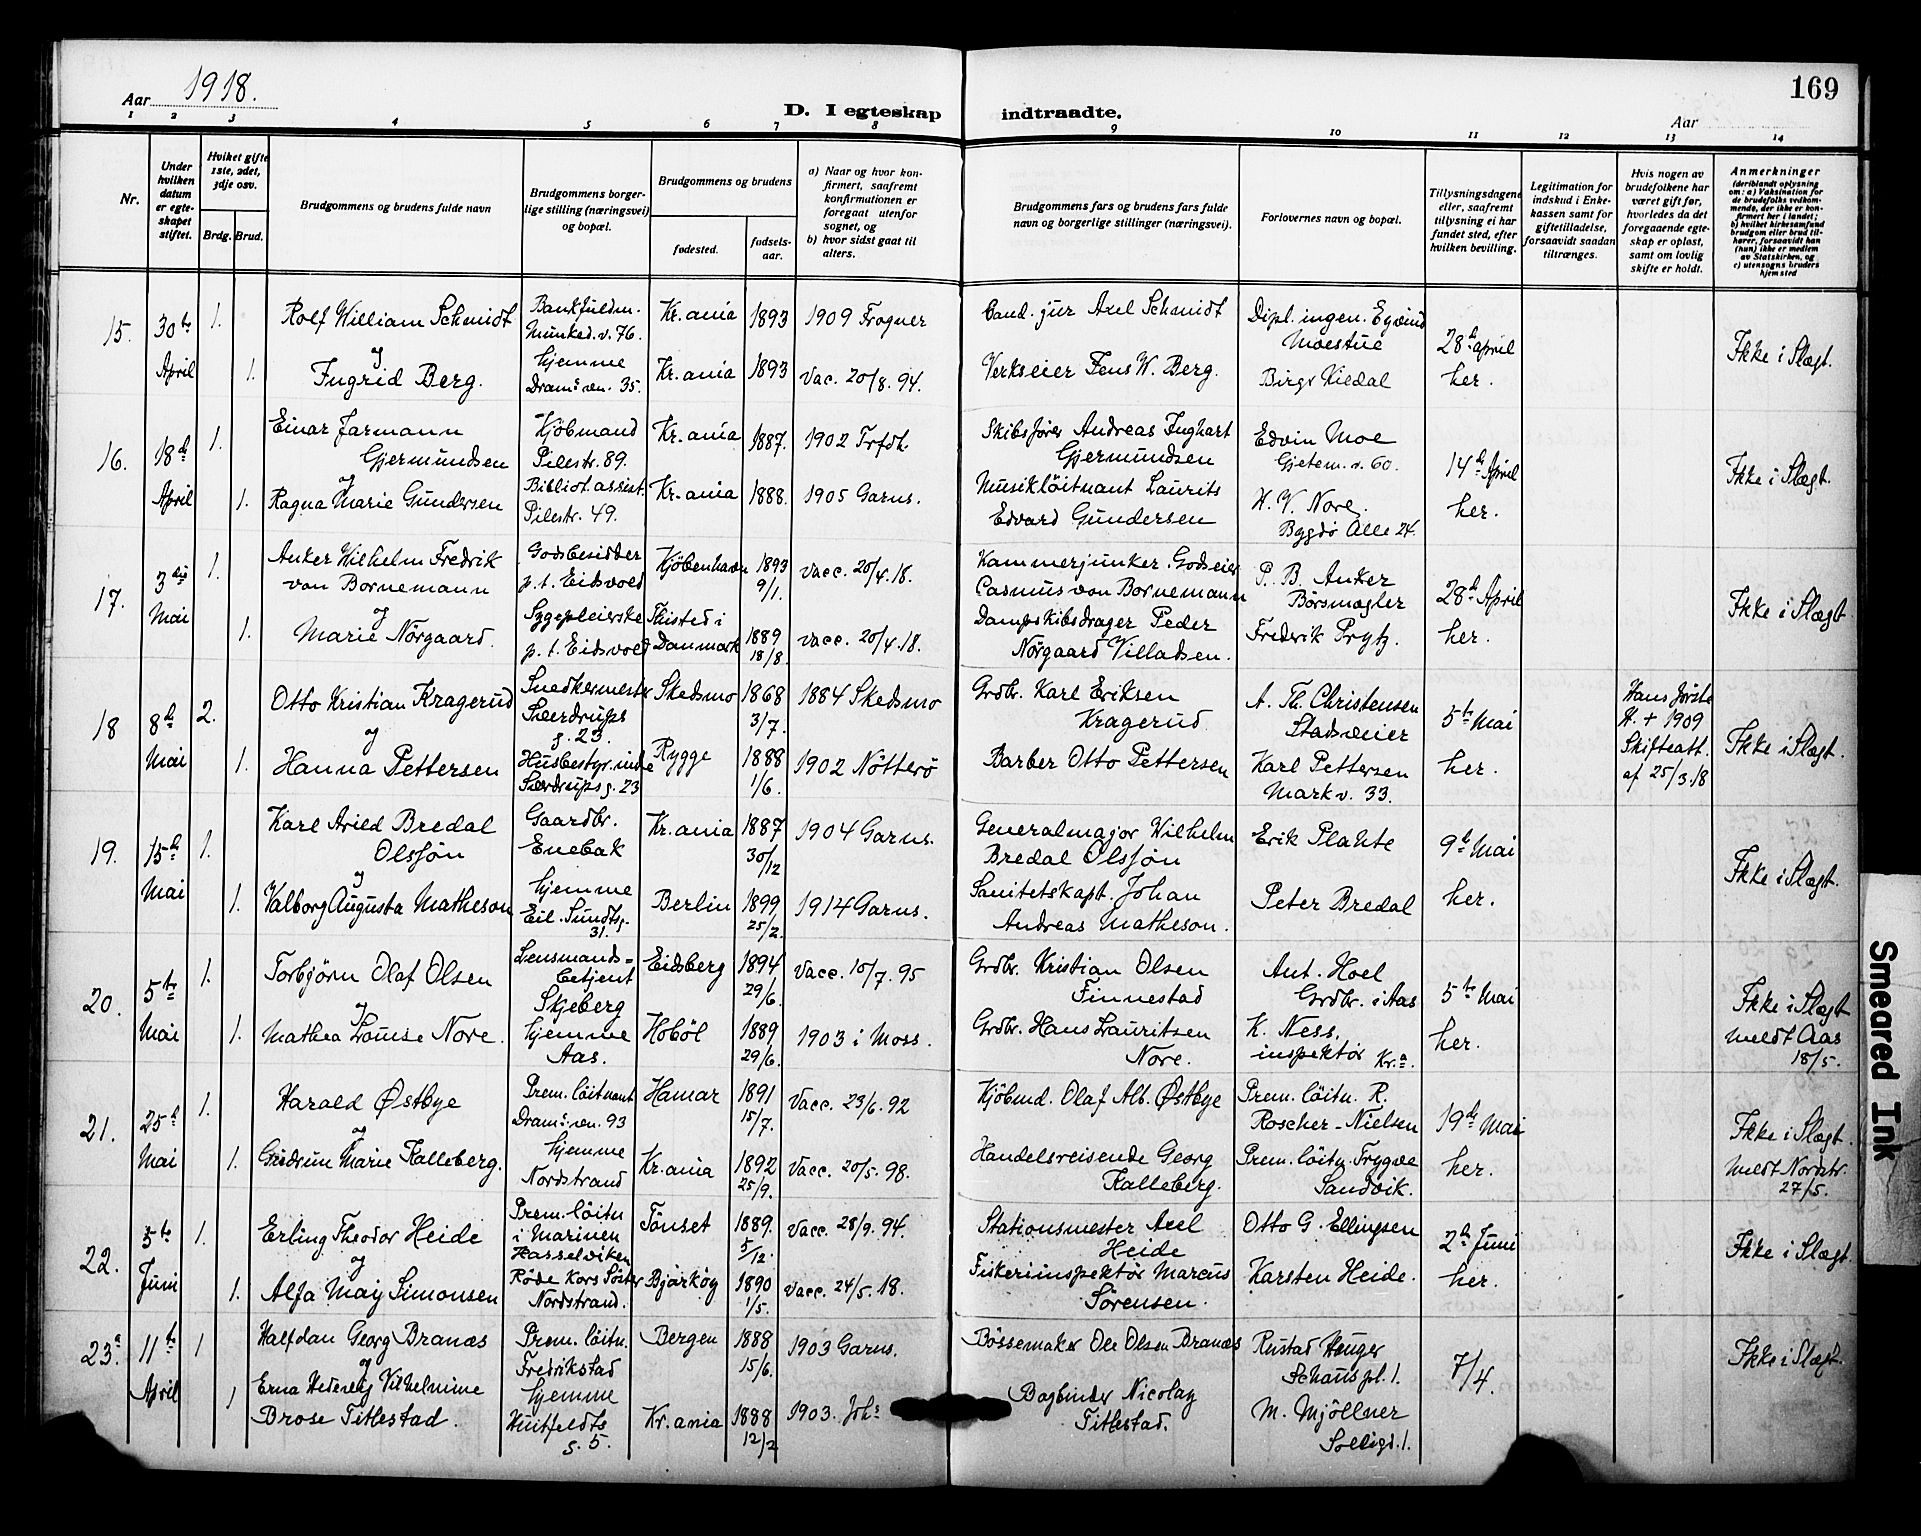 169
Aar 1918.
D. I egteskap indtraadte.
Aar
1 2 3 4 5 6 7 8 9 10 11 12 13 14
Nr.
Under hvilken datum er egteskapet stiftet.
Hviket gifte 1ste, 2det, 3dje osv.
Brdg. Brud.
Brudgommens og brudens fulde navn
Brudgommens borgerlige stilling (næringsvei) og bopæl.
Brudgommens og brudens
fødested.
fødselsaar.
a) Naar og hvor konfirmert, saafremt konfirmationen er foregaat utenfor sognet, og
b) hvor sidst gaat til alters.
Brudgommens fars og brudens fars fulde navn og borgerlige stillinger (næringsvei).
Forlovernes navn og bopæl.
Tillysningsdagene eller, saafremt tillysning ei har fundet sted, efter hvilken bevilling.
Legitimation for indskud i Enkekassen samt for giftetilladelse, forsaavidt saadan tiltrænges.
Hvis nogen av brudefolkene har været gift før, hvorledes da det foregaaende egteskap er opløst, samt om lovlig skifte er holdt.
Anmerkninger
(deriblandt oplysning om: a) Vaksination for de brudefolks vedkommende, der ikke er konfirmert her i landet; b) hvilket kirkesamfund brudgom eller brud tilhører, forsaavidt han (hun) ikke er medlem av Statskirken, og c) utensogns bruders hjemsted
15. 30te April 1. Rolf William Schmidt Bankfuldm. Munked.v. 76. Kr.ania 1893 1909 Frogner Cand. jur Axel Schmidt Dipl. ingen. Eyvind Moestue 28d april her. Ikke i Slægt.
og
1. Ingrid Berg. hjemme Drams.ven. 35. Kr.ania 1893 Vac. 20/8. 94. Verkseier Jens W. Berg. Birgr Kiedal
16. 18d April 1. Einar Jarmann Gjermundsen Kjöbmand Pilestr. 89. Kr.ania 1887. 1902 Trfdh. Skibsfører Andreas Inghart Gjermundsen Edvin Moe Gjetem.v. 60. 14d April her. Ikke i Slægt.
og
1. Ragna Marie Gundersen Bibliot.assist. Pilestr. 49. Kr.ania 1888. 1905 Garns. Musiklöitnant Laurits Edvard Gundersen H. V. Nore. Bygdø Alle 24.
17. 3die Mai 1. Anker Wilhelm Fredrik von Bornemann Godsbesidder p.t. Eidsvold Kjöbenhavn 1893 9/1. vacc. 20/4.18. Kammerjunker. Godseier Casmus von Bornemann P. B. Anker Børsmægler 28d April her. Ikke i Slægt
og
1. Marie Nörgaard. Sygepleierske p.t. Eidsvold Thisted i Danmark 1889 18/8. vacc. 20/4.18. Dampskibsdrager Peder Nörgaard Villadsen. Fredrik Prytz.
18 8d Mai 2. Otto Kristian Kragerud Snedkermester Sverdrups g. 23. Skedsmo 1868 3/7. 1884 Skedsmo Grdbr. Karl Eriksen Kragerud A. Th. Christensen Stadsveier 5te Mai her. Hans første H. + 1909 Skifteatt. af 25/3.18 Ikke i Slægt.
og
1. Hanna Pettersen Husbestyrinde Sverdrups g. 23 Rygge 1888 1/6. 1902 Nötterö Barber Otto Pettersen Karl Pettersen Markv. 33.
19. 15d Mai 1. Karl Arild Bredal Olssön Gaardbr. Enebak Kr.ania 1887 30/12 1904 Garns. Generalmajor Wilhelm Bredal Olssön Erik Plahte 9d Mai her. Ikke i Slægt.
og
1. Valborg Augusta Matheson hjemme Eil. Sundtsg. 31. Berlin 1899 25/2. 1914 Garns. Sanitetskapt. Johan Andreas Matheson. Peter Bredal
20. 5te Mai 1. Torbjörn Olaf Olsen Lensmandsbetjent Skjeberg Eidsberg 1894 29/6. Vacc. 10/7. 95 Grdbr. Kristian Olsen Finnestad Ant. Hoel Grdbr. i Aas 5te Mai her. Ikke i Slægt meldt Aas 18/5.
og
1. Mathea Louise Nore. hjemme Aas. Hoböl 1889 29/6. 1903 i Moss. Grdbr. Hans Lauritsen Nore. K. Ness. inspektör Kr.a.
21. 25d Mai 1. Harald Østbye Prem.löitnant Drams.ven. 93 Hamar 1891 15/7. Vacc. 23/6. 92 Kjöbmd. Olaf Alb. Østbye Prem. löitn. R. Roscher-Nielsen 19de Mai her. Ikke i Slægt. meldt Nordstr. 27/5.
og
1. Gudrun Marie Kalleberg. hjemme Nordstrand Kr.ania 1892 25/9. Vacc. 20/5. 98. Handelsreisende Georg Kalleberg. Prem. löitn. Trygve Sandvik.
22. 5te Juni 1. Erling Theodor Heide Prem. löitn i Marinen Hasselviken Tönset 1889. 5/12. Vacc. 28/9. 94. Stationsmester Axel Heide Otto G. Ellingsen 2d Juni her. Ikke i Slægt.
og
1. Alfa May Simonsen Röde Kors Söster Nordstrand. Bjarköy 1890 1/5. Vacc. 24/5. 18. Fiskeriinspektör Marcus Sörensen. Karsten Heide.
23.a 11te April 1 Halfdan Georg Branæs Prem. löitn. Fredrikstad Bergen 1888 15/6. 1903 Garns. Bössemaker Ole Olsen Branæs Rustad Hauger Schaus pl. 1. 7/4. Ikke i Slægt.
og
1 Erna Hedevig Vilhelmine Brose Titlestad. hjemme Huitfeldts g. 5. Kr.ania 1888 12/2 1903. Johs Bogbinder Nicolay Titlestad. M. Mjöllner Solligt. 1.
Smeared Ink